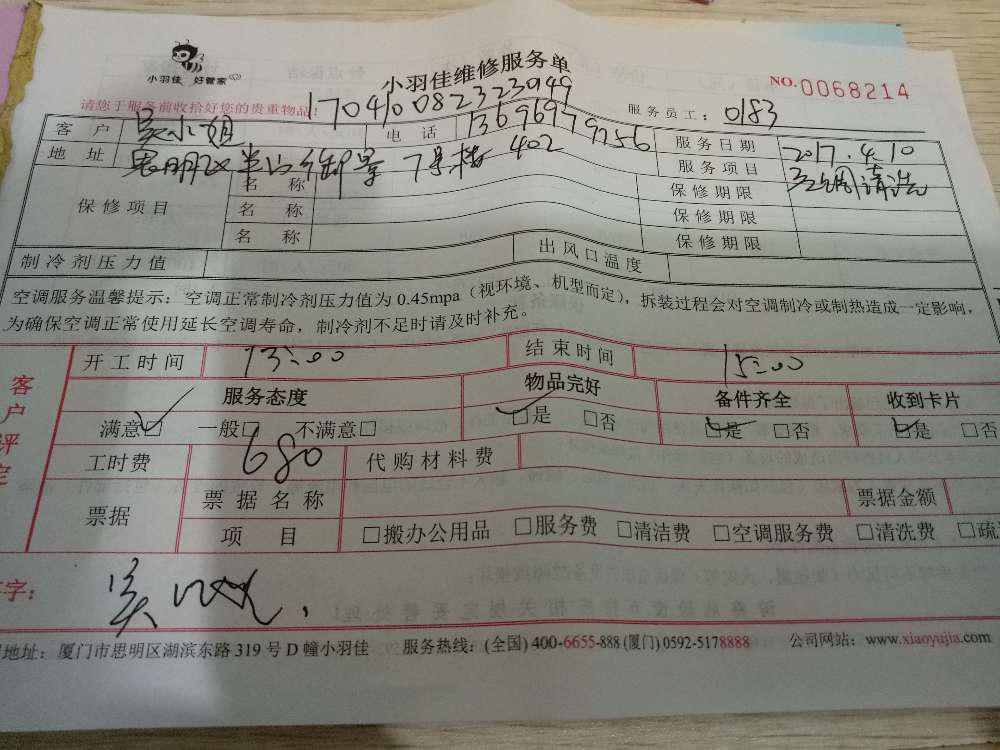 小羽佳 好管家
小羽佳维修服务单
NO.0068214
请您于服务前收拾好您的贵重物品！ 1704100823230149
服务员工： 0183
客户 吴小姐 电话 13696979756 服务日期 2017.4.10
地址 思明区半山御景7号楼402 服务项目 空调清洗
保修项目 名称 保修期限
名称 保修期限
名称 保修期限
制冷剂压力值 出风口温度
空调服务温馨提示：空调正常制冷剂压力值为 0.45mpa（视环境、机型而定），拆装过程会对空调制冷或制热造成一定影响，
为确保空调正常使用延长空调寿命，制冷剂不足时请及时补充。
客户评定
开工时间 13:00 结束时间 15:00
服务态度 物品完好 备件齐全 收到卡片
满意☑ 一般□ 不满意□ ☑是 □否 ☑是 □否 ☑是 □否
工时费 680 代购材料费
票据 票据名称 票据金额
项目 □搬办公用品 □服务费 □清洁费 □空调服务费 □清洗费 □疏
字： 吴
地址：厦门市思明区湖滨东路 319 号 D 幢小羽佳 服务热线：(全国) 400-6655-888 (厦门) 0592-5178888 公司网站：www.xiaoyujia.com